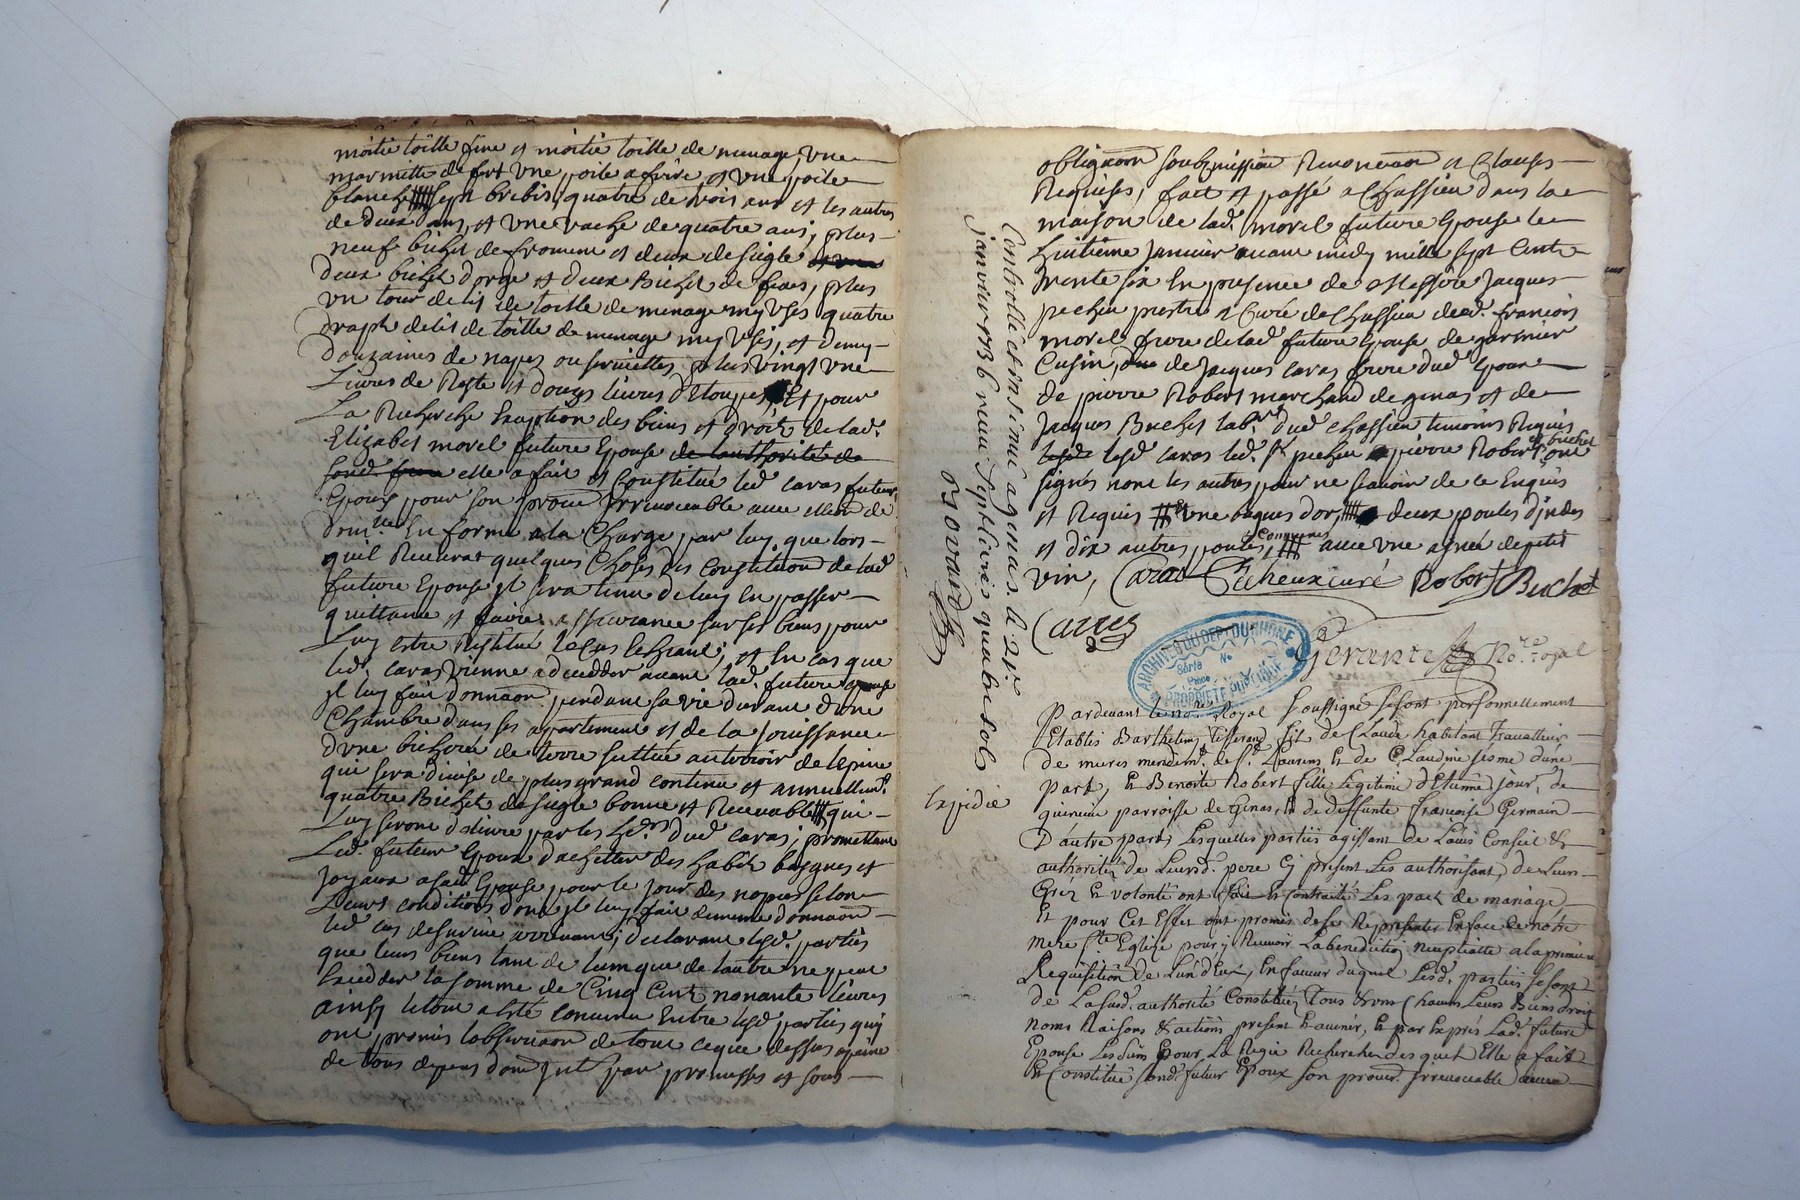 moitié toille fine et moitié toille de menage, une
marmitte de fert une poile a frire, et une poile
blanche sept brebis, quatre de trois ans et les autres
de deux ans, et une vache de quatre ans, plus
neuf bichet de froment et deux de seigle et une
deux bichet dorge et deux Bichet de feves, plus
un tour de lit de toille de menage my usés quatre
draph de lit de toille de menage my usés, et demy
douzaines de napes ou serviettes, plus vingt une
Livres de Riste et douze livres d'Etoupes Et pour
La Recherche Exaption des biens et droits de lad.
Elizabet morel future Epouse de lauthorité de
elle a fait et Constitué led caras futur
Epoux pour son procur Irrevocable avec
En forme a la Charge par luy que lors
quil Recevrat quelques Choses des Constitution de lad
future Epouse jl sera tenu de luy En passer
quittance et faire assurance sur ses biens pour
Luy estre Restitué le Cas le Echeant, et En cas que
led. caras vienne a decedder avant lad. future Epouse
jl luy fait donnaon pendant sa vie durant d'une
Chambre dans ses apartement et de la jouissance
d'une bicherée de terre scittue au terroir de lepine
qui sera divise de plus grand contenu et annuellemt.
quatre Bichet de seigle bonne et Recevable qui
Luy seront delivré par les dud caras; promettant
Led. futeur Epoux d'achetter des habits bagues et
joyaux a sad Epouse pour le jour des nopces selon
Leurs conditions dont jl luy fait de meme donnaon
led cas de survie arrivant; declarant lesd. parties
que leurs biens tant de lun que de lautre ne peut
Excedder la somme de Cinq Cent nonante livres
ainsy letout a esté convenu Entre lesd parties quy
ont promis lobservaon de tout ceque dessus apeine
de tous depens dom par promesses et sous
obligaon soubzmission Renonciaon et Clauses
Requises, fait et passé a Chassieu dans la
maison de lad. morel future Epouse le
huitieme Janvier avant midy mille sept Cent
trente six En presence de Messire Jacques
pecheu pretre et Curé de Chassieu de françois
morel frere de lad future Epouse de
Cusin, de Jacques caras frere dud Epoux
de pierre Robert marchand de genas et de
Jacques Buchet labr. dud Chassieu temoins Requis
lesd caras led. Sr pecheu pierre Robert et buchet ont
signés non les autres pour ne scavoir de ce Enquis
et Requis une bagues d'or, deux poules djndes
et dix autres poules, Communes avec une anée de petit
vin, Caras Pecheux curé Robert Buchet
Carres
Gerante No.re royal
Controllé et insinué a genas le 21e.
janvier 1736 reçu sept livres quatre sols
Bovard
ARCHIVES DU DEPT DU RHONE
Série No
Pièce
PROPRIÉTÉ PUBLIQUE
Pardevant le no.re Royal soussigné se sont personnellement
Etablis Barthelemy Tisserand fils de Claude habitant Travailleur
de mures mandemt. de St. Laurens et de Claudine d'une
Part, Et Benoite Robert fille legitime d'Etienne, jour. de
quincieu parroisse de Genas, Et de deffunte françoise Germain
D'autre part, Lesquelles parties agissant de L'avis Conseil et
authorités de Leursd. pere Cy present Les authorisant, de Leurs
Gréz Et volonté ont fait et Contraité Les pact de mariage
Et pour Cet Effet ont promis de se Representer En face de notre
mere Ste Eglise pour y Recevoir La benediction neuptialle a la premiere
Requisition de L'un d'Eux, En faveur duquel Lesd. parties se sont
de La sud. authorité Constitués Tous et uns Chacuns Leurs Biens droits
noms Raisons et actions present et avenir, Et par Exprés Lad. future
Epouse Les siens pour La Regie Recherche desquels Elle a fait
Et Constitué sond. futur Epoux son procur. Irrevocable avec
Expedié